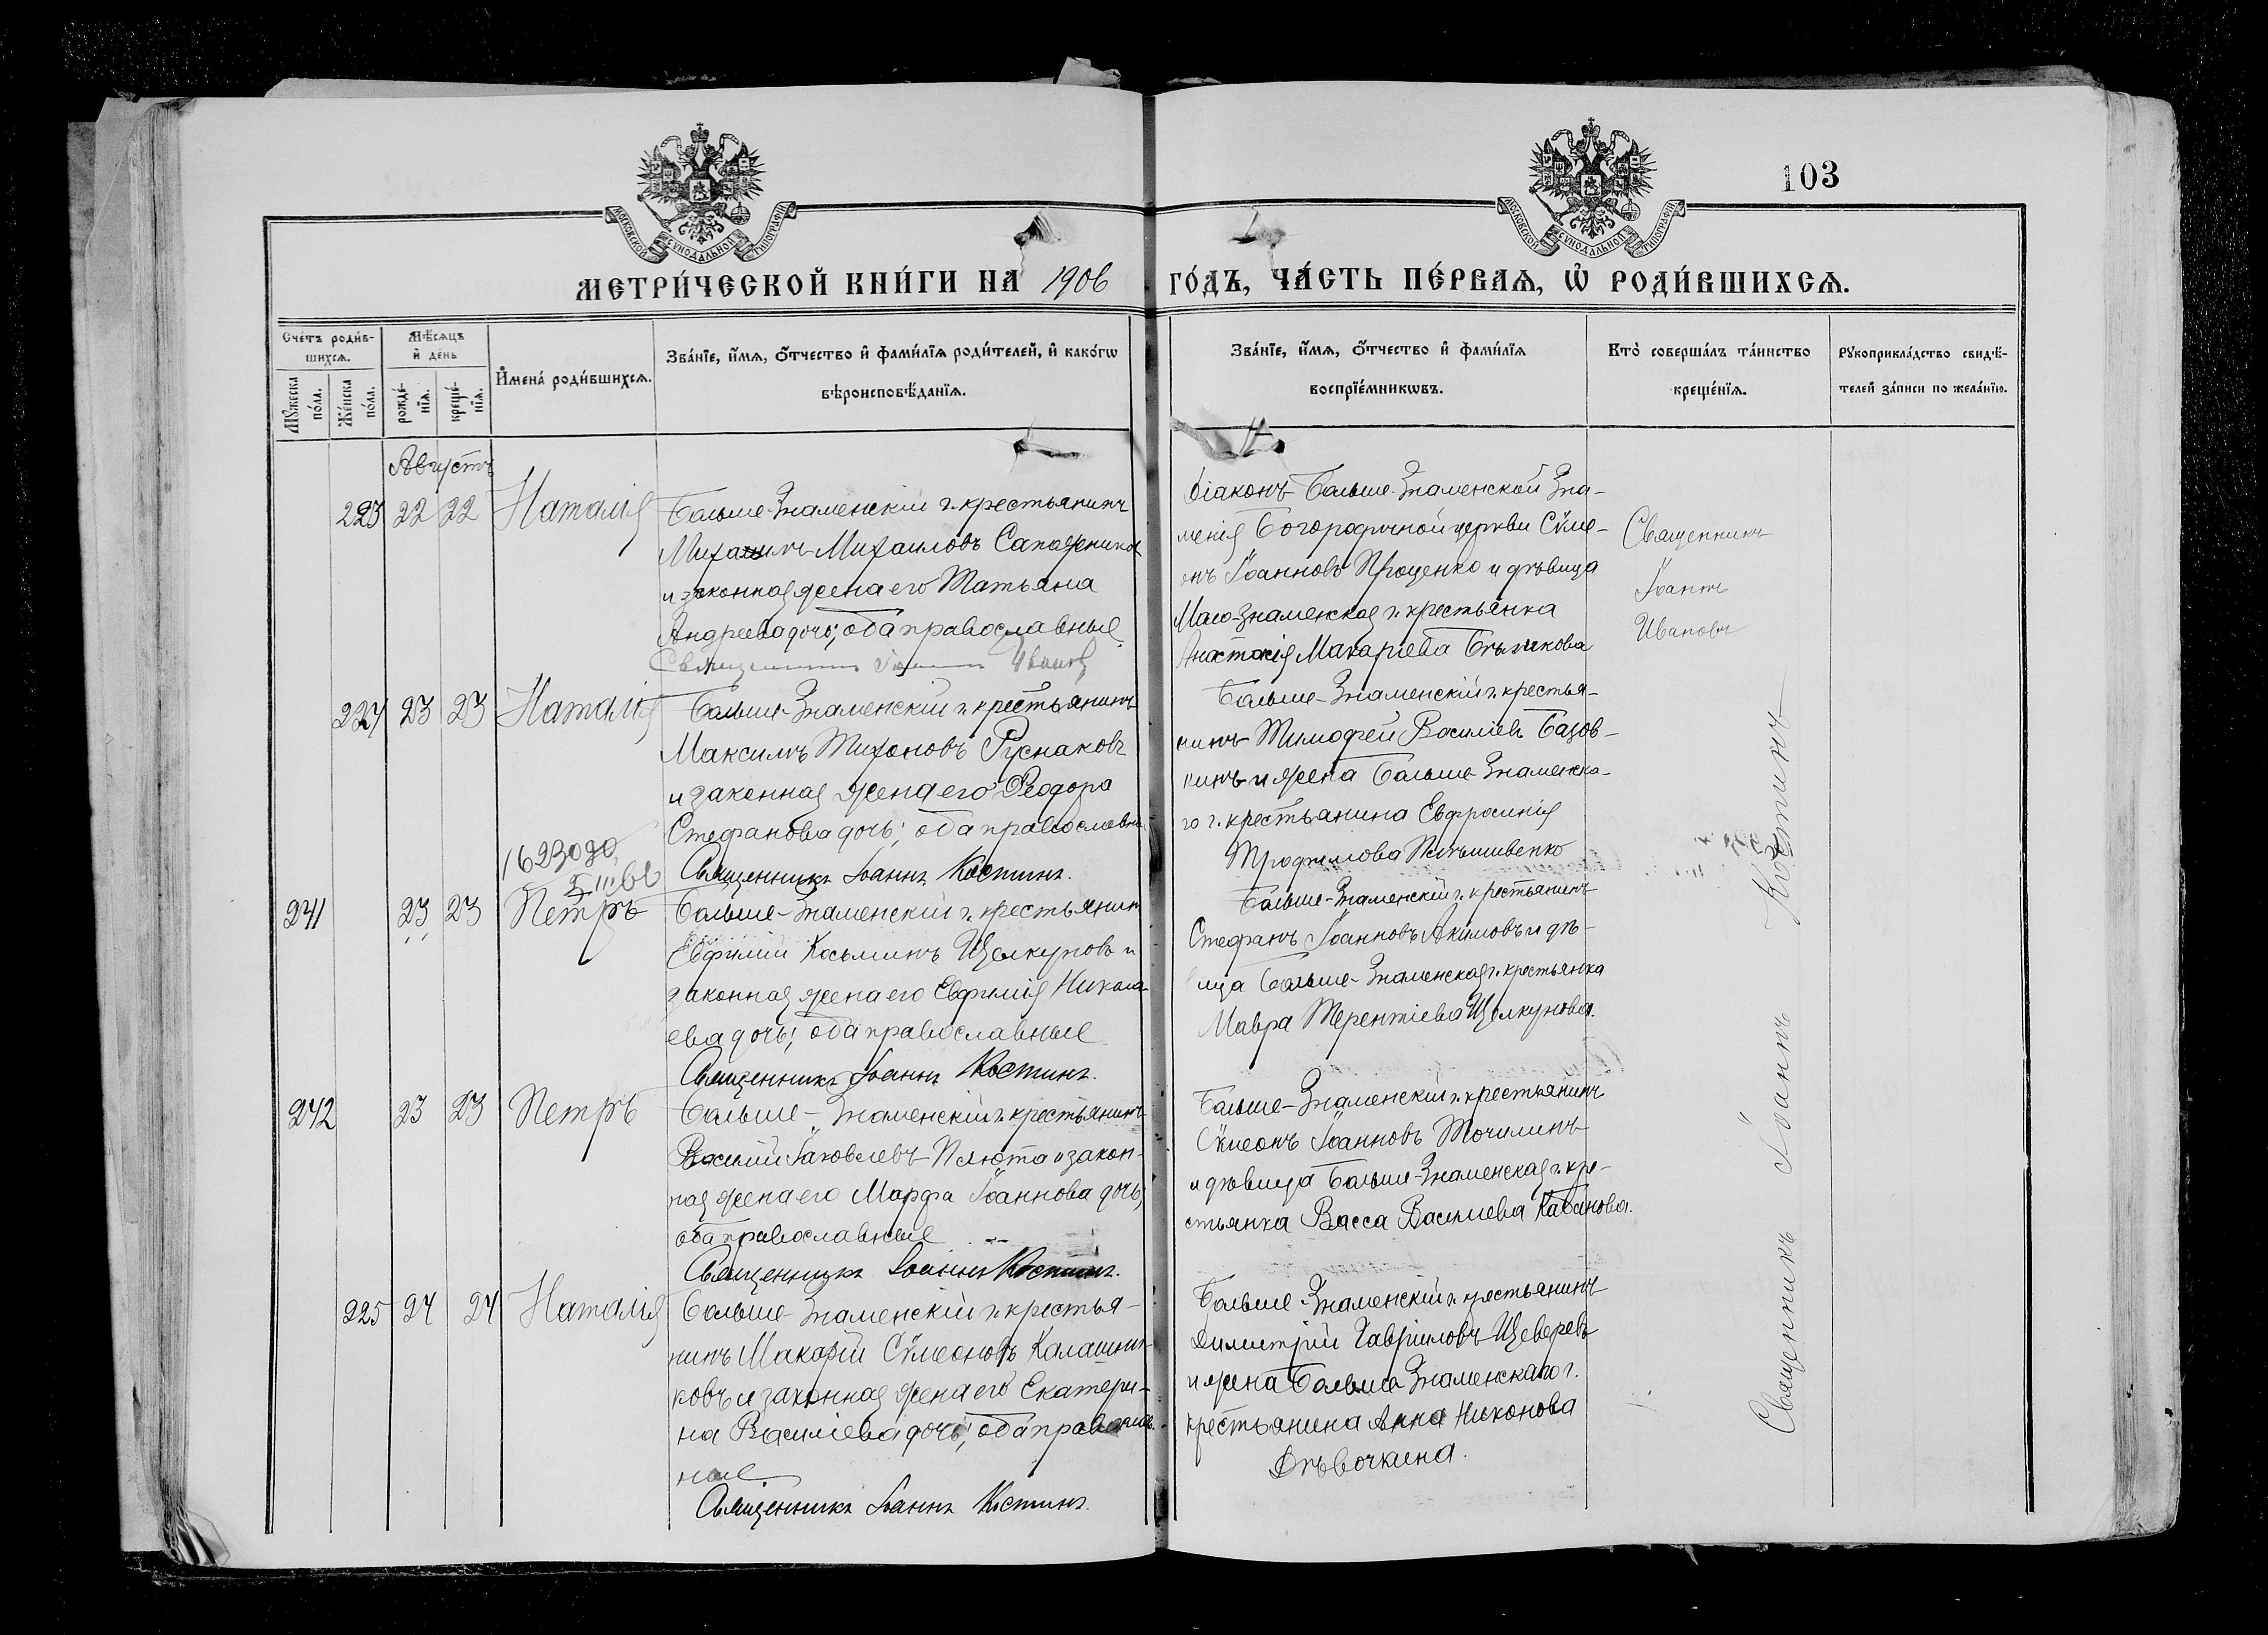 103
МОСКОВСКОЙ СѴНОДАЛЬНОЙ ТИПОГРАФІИ
МОСКОВСКОЙ СѴНОДАЛЬНОЙ ТИПОГРАФІИ
МЕТРИ́ЧЕСКОЙ КНИ́ГИ НА 1906 ГО́ДЪ, ЧА́СТЬ ПЕ́РВАѦ, Ѽ РОДИ́ВШИХСѦ.
Счетъ роди́вшихсѧ.
Мꙋ́жеска по́ла.
Же́нска по́ла.
Мѣ́сѧцъ и҆ де́нь
рожде́нїѧ.
креще́нїѧ.
И҆мена̀ роди́вшихсѧ.
Зва́нїе, и҆́мѧ, ѻ҆́тчество и҆ фами́лїѧ роди́телей, и҆ како́гѡ
вѣроисповѣ́данїѧ.
Зва́нїе, и҆́мѧ, ѻ҆́тчество и҆ фами́лїѧ
воспрїе́мникѡвъ.
Кто̀ соверша́лъ та́инство
креще́нїѧ.
Рꙋкоприкла́дство свидѣ́-
телей за́писи по жела́нїю.
Августъ
223 22 22 Наталія
Больше-Знаменскій г. крестьянинъ
Михаилъ Михаиловъ Сапожников
и законная жена его Татьяна
Андреева дочь; оба православные
Священникъ Іоаннъ Ивановъ
Діаконъ Больше-Знаменской Зна-
менія Богородичной церкви Сѵме-
онъ Іоанновъ Проценко и дѣвица
Мало-Знаменская г. крестьянка
Анастасія Макаріева
Священникъ
Іоаннъ
Ивановъ
224 23 23 Наталія
Больше-Знаменскій г. крестьянинъ
Максимъ Тихоновъ Руснаковъ
и законная жена его Ѳеодора
Стефанова дочь; оба православн
Священникъ Іоаннъ Костинъ.
Больше-Знаменскій г. крестья-
нинъ Тимофей Василіевъ Базов-
кинъ и жена Больше-Знаменска-
го г. крестьянина Евфросинія
Трофимова
1623090
241 23 23 Петръ
Больше-Знаменскій г. крестьянин
Евфимій Косьминъ Щелкуновъ и
законная жена его Евфимія Никола-
ева дочь; оба православные
Священникъ Іоаннъ Костинъ.
Больше-Знаменскій г. крестьянинъ
Стефанъ Іоанновъ Акимовъ и дѣ-
вица Больше-Знаменская г. крестьянка
Мавра Терентіева Щелкунова.
242 23 23 Петръ
Больше-Знаменскій г. крестьянинъ
Василій Іаковлевъ Плюта и закон-
ная жена его Марфа Іоаннова дочь;
оба православные
Священникъ Іоаннъ Костинъ.
Больше-Знаменскій г. крестьянинъ
Сѵмеонъ Іоанновъ Точилинъ
и дѣвица Больше-Знаменская г. кре-
стьянка Васса Василиева Кабанова.
225 24 24 Наталія
Больше-Знаменскій г. крестья-
нинъ Макарій Сѵмеоновъ Калашни-
ковъ и законная жена его Екатери-
на Василіева дочь; оба православ-
ные
Священникъ Іоаннъ Костинъ.
Больше-Знаменскій г. крестьянинъ
Димитрій Гавріиловъ Щеверевъ
и жена Больше-Знаменскаго г.
крестьянина Анна Никонова
Дѣвочкина.
Священникъ Іоаннъ Костинъ